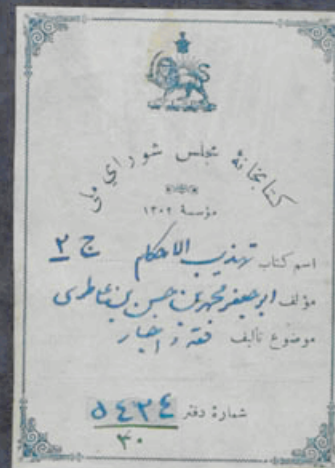 کتابخانهٔ مجلس شورای ملی
مؤسسهٔ ۱۳۰۲
اسم کتاب تهذیب الاحکام ج ۲
مؤلف ابو جعفر محمد بن حسن بن علی طوسی
موضوع تألیف فقه و اخبار
شمارهٔ دفتر ۵۴۳۴
۳۰